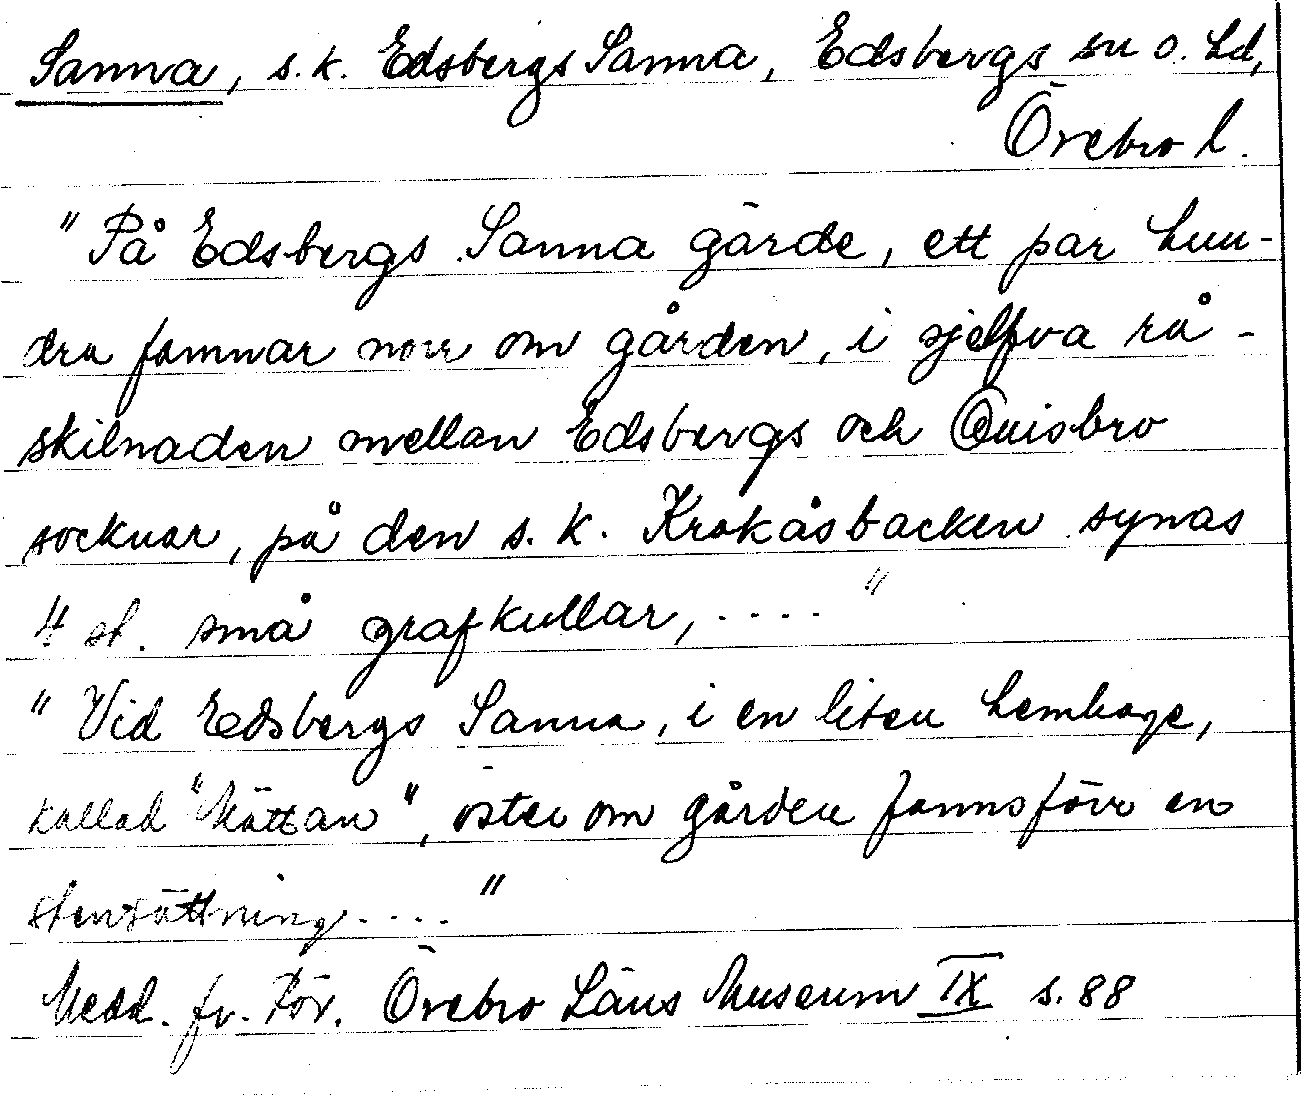 Sanna, s.k. Edsbergs Sanna, Edsbergs sn o. hd,
Örebro l.
"På Edsbergs Sanna gärde, ett par hun-
dra famnar norr om gården, i sjelfva rå-
skilnaden mellan Edsbergs och Quisbro
socknar, på den s.k. Krokåsbacken synas
4 st. små grafkullar, ...."
"Vid Edsbergs Sanna, i en liten hemhage,
kallad "Mättan", öster om gården fanns förr en
stensättning...."
Medd. fr. För. Örebro Läns Museum IX s. 88